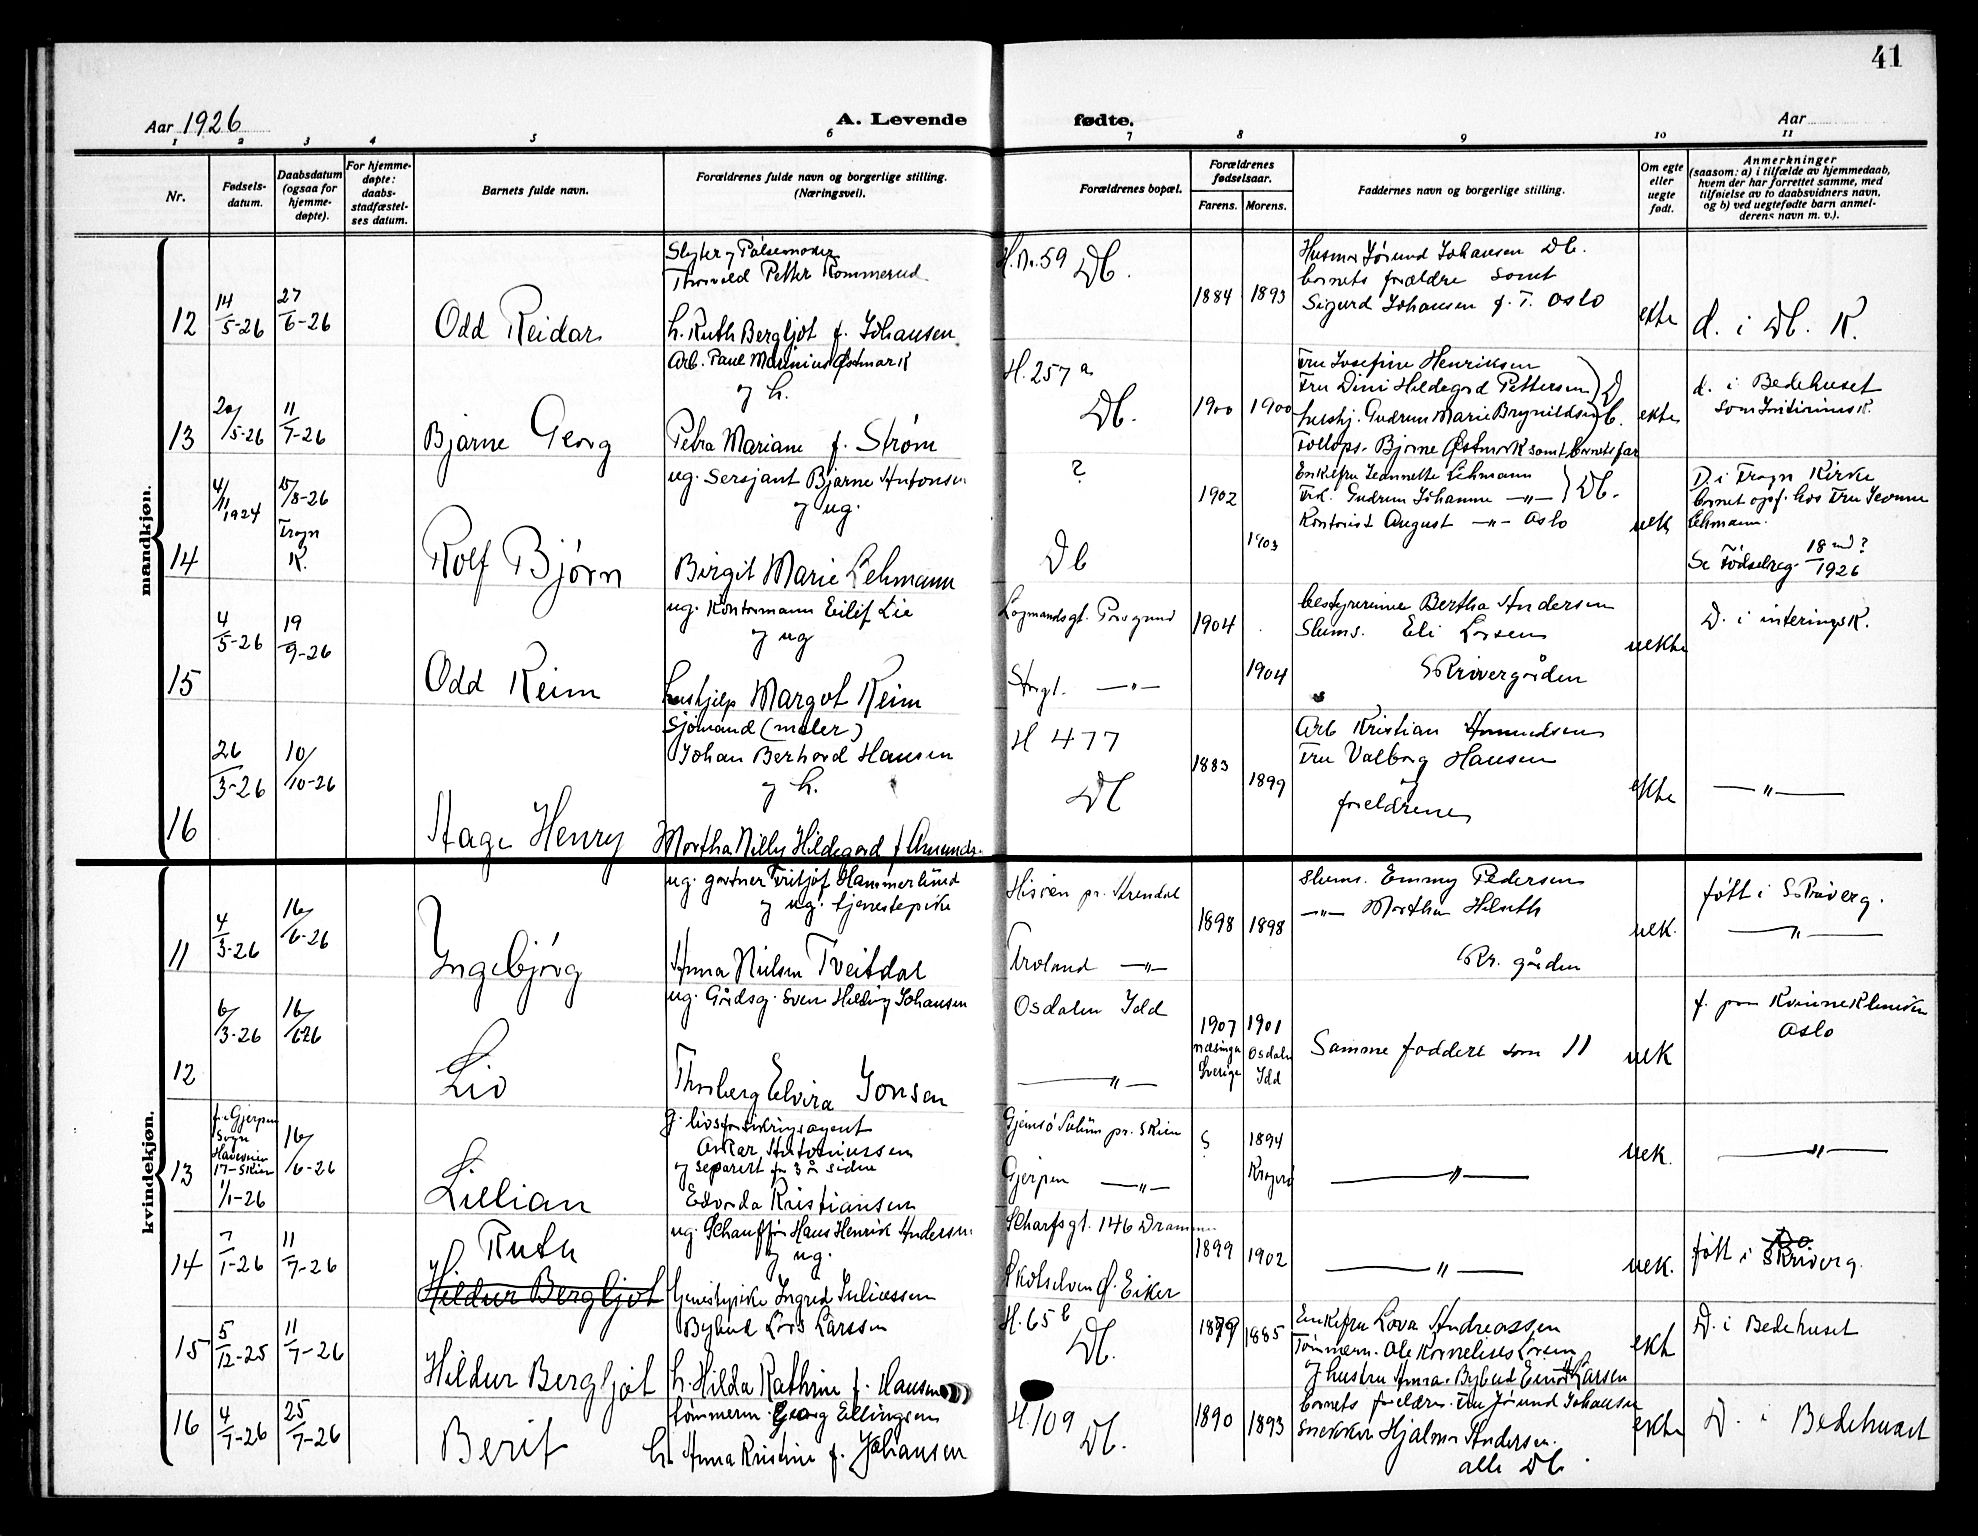 41
Aar 1926
A. Levende fødte.
Aar
1 2 3 4 5 6 7 8 9 10 11
Nr.
Fødsels-
datum.
Daabsdatum
(ogsaa for
hjemme-
døpte).
For hjemme-
døpte:
daabs-
stadfæstel-
ses datum.
Barnets fulde navn.
Forældrenes fulde navn og borgerlige stilling.
(Næringsvei).
Forældrenes bopæl.
Forældrenes
fødselsaar.
Farens. Morens.
Faddernes navn og borgerlige stilling.
Om egte
eller
uegte
født.
Anmerkninger
(saasom: a) i tilfælde av hjemmedaab,
hvem der har forrettet samme, med
tilføielse av to daabsvidners navn,
og b) ved uegtefødte barn anmel-
derens navn m. v.).
mandkjøn.
12
14/5-26
27/6-26
Odd Reidar
Thorvald Petter Rommerud
h. Ruth Bergljot f. Johansen
H.Nr. 59 Db.
1884 1893
Husmor Jørund Johansen Db.
barnets forældre samt
Sigurd Johansen f. T. Oslo
ekte
d. i Db. K.
13
20/5-26
11/7-26
Bjarne Georg
Arb. Paul Marinius Østmark
og h.
Petra Mariane f. Strøm
H. 257 a
Db.
1900 1900
Fru Josefine Henriksen
Fru Dini Hildegard Pettersen
hushj. Gudrun Marie Brynildsen
Bjarne Østmark samt barnets far
ekte
d. i Bedehuset
som Interims K.
14
4/11 1924
15/8-26
Frogn
K.
Rolf Bjørn
ug. Sersjant Bjarne Antonsen
og ug.
Birgit Marie Lehmann
?
Db
1902
1903
Enkefru Jeannette Lehmann
Frk. Gudrun Johanne -"- Db.
Kontorist August -"- Oslo
uek
D. i Frogn Kirke
barnet opf. hos Fru
Lehmann.
Se Fødselreg. 18 nd?/1926
15
4/5-26
19/9-26
Odd Reim
ug. Kontormann Eilif Lie
og ug
hushjelp Margot Reim
Logmandsgt. Porsgrund
Storgt. -"-
1904
1904
bestyrerinne Bertha Andersen
Slums. Eli Larsen
Skrivergården
uekte
D. i interimsK.
16
26/3-26
10/10-26
Aage Henry
Sjømand (maler)
Johan Berhard Hansen
og h.
Martha Nilly Hildegard f Amunds.
H 477
Db
1883
1899
Arb Kristian Amundsen
Fru Valborg Hansen
og
foreldrene
ekte
-"-
kvindekjøn.
11
4/3-26
16/6-26
Ingebjørg
ug. gartner Fritjof Hammerlund
og ug. tjenestepike
Anna Nielsen Tveitdal
Hisøen pr. Arendal
Froland -"-
1898 1898
Slums. Emmy Pedersen
-"- Martha Helseth
Skr. gården
uek.
født i Skriverg.
-"-
12
6/3-26
16/6-26
Liv
ug. Gårdsg. Sven Helding Johansen
Thorberg Elvira Jonsen
Osdalen Idd
-"-
1907
Sverige
1901
Osdalen
Idd
Samme faddere som 11
uek
f. paa Kvinneklinikken
Oslo
13
f. Gjerpen
Sogn
17- Skien
1/1-26
16/6-26
Lillian
g. livsforsikringsagent
Oskar Antoniussen
og separert for 3 år siden
Edvarda Kristiansen
Gjemsø Solum pr. Skien
Gjerpen -"-
?
1894
Kragerø
-"-
uek.
-"-
14
7/1-26
11/7-26
Ruth
Hildur Bergljot
ug. Schauffør Hans Henrik Andersen
og ug.
tjenestepike Ingrid Juliussen
Scharfsgt. 146 Drammen
Skotselven Ø. Eiker
1899 1902
-"-
uek.
født i Skriverg.
15
5/12-25
11/7-26
Hildur Bergljot
Bybud Lars Larssen
h. Hilda Kathrine f. Hansen
H. 65 b
Db.
1879 1885
Enkefru Lova Andreassen
Tømmerm. Ole Kornelius Lorem
og hustru Anna. Bybud Einar Larsen
ekt
D. i Bedehuset
16
4/7-26
25/7-26
Berit
tømmerm. Georg Ellingsen
h. Anna Kristine f. Johansen
H. 109
Db.
1890 1893
barnets foreldre. Fru Jørund Johansen
Snekker Hjalmar Andersen.
alle Db.
ekte
D. i Bedehuset